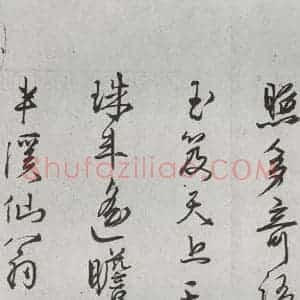 照多奇
玉笈天上
珠斗遙瞻
半溪仙翁
Shufaziliao.com